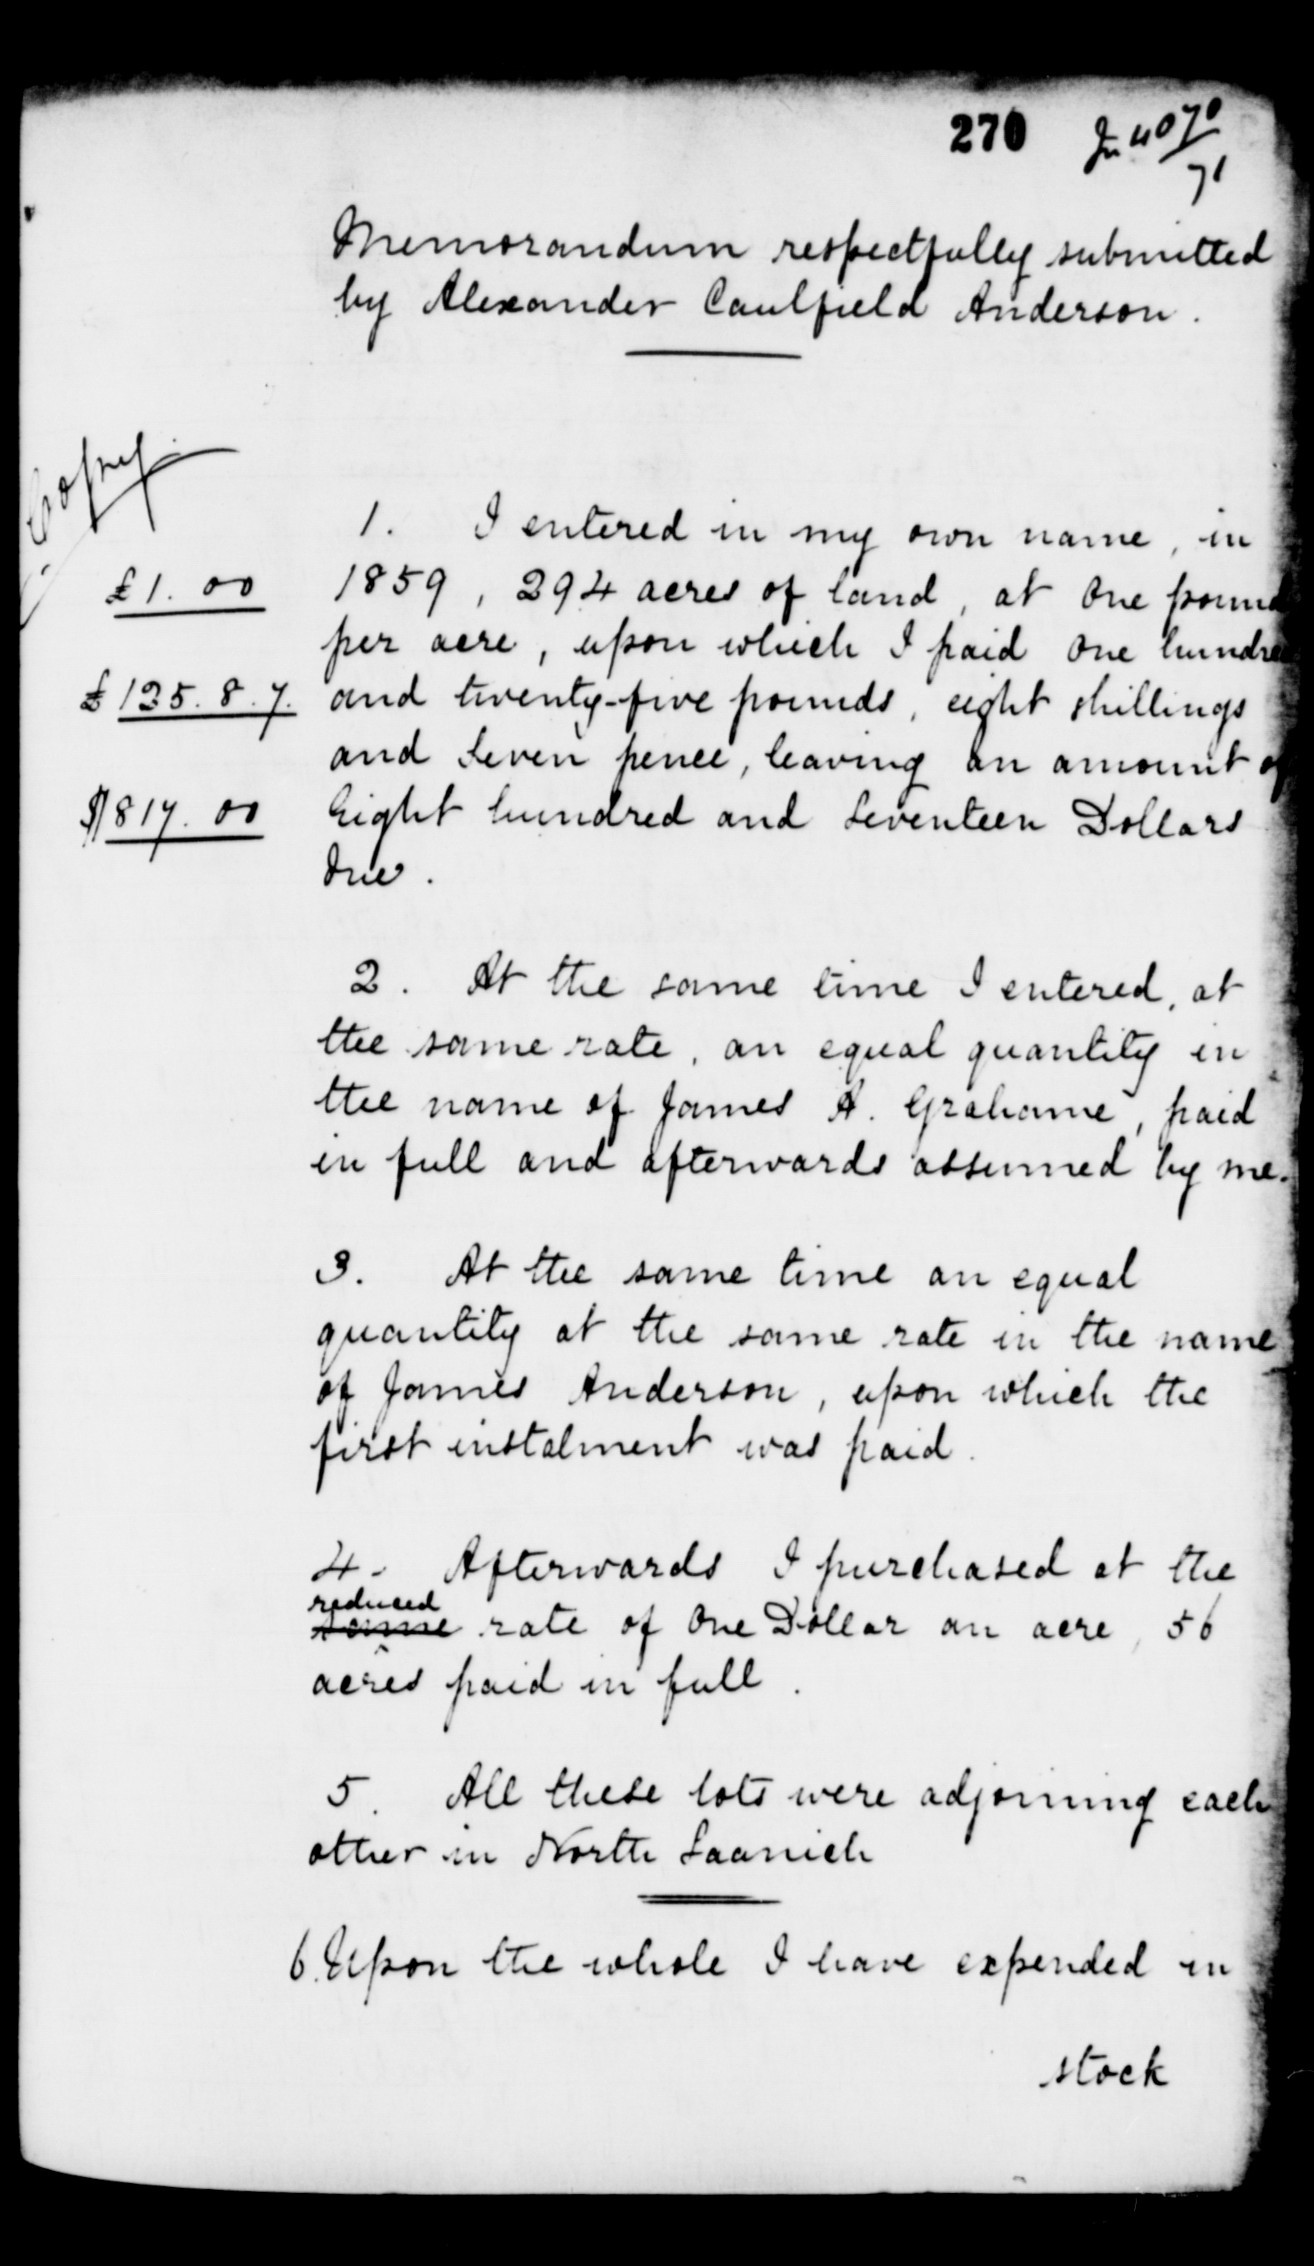 270 In 4070/71
Memorandum respectfully submitted
by Alexander Caulfield Anderson.
Copy.
1. I entered in my own name, in
£1.00 1859, 294 acres of land, at One pound
per acre, upon which I paid One hundred
£125.8.7. and twenty-five pounds, eight shillings
and Seven pence, leaving an amount of
$817.00 Eight hundred and Seventeen Dollars
due.
2. At the same time I entered, at
the same rate, an equal quantity in
the name of James A. Grahame, paid
in full and afterwards assumed by me.
3. At the same time an equal
quantity at the same rate in the name
of James Anderson, upon which the
first instalment was paid.
4. Afterwards I purchased at the
reduced
same rate of One Dollar an acre, 56
acres paid in full.
5. All these lots were adjoining each
other in North Saanich
6. Upon the whole I have expended in
stock